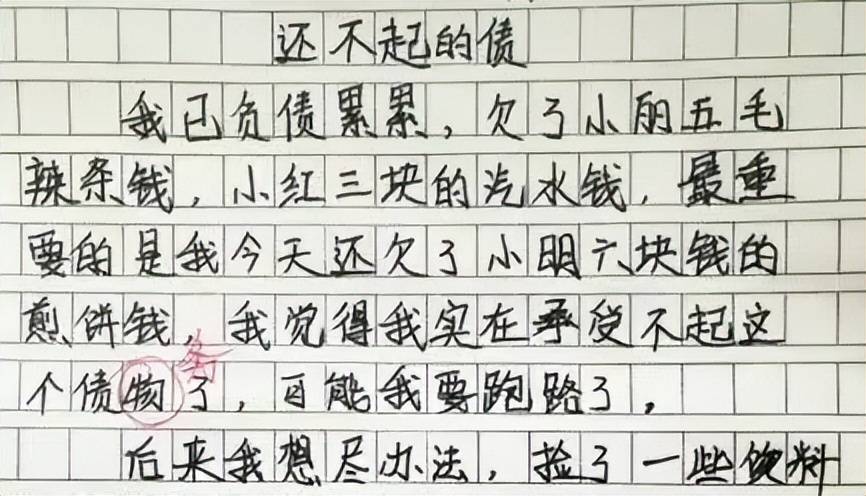 还不起的债
我已负债累累，欠了小丽五毛
辣条钱，小红三块的汽水钱，最重
要的是我今天还欠了小明六块钱的
煎饼钱，我觉得我实在承受不起这
务
个债物了，可能我要跑路了，
后来我想尽办法，捡了一些饮料